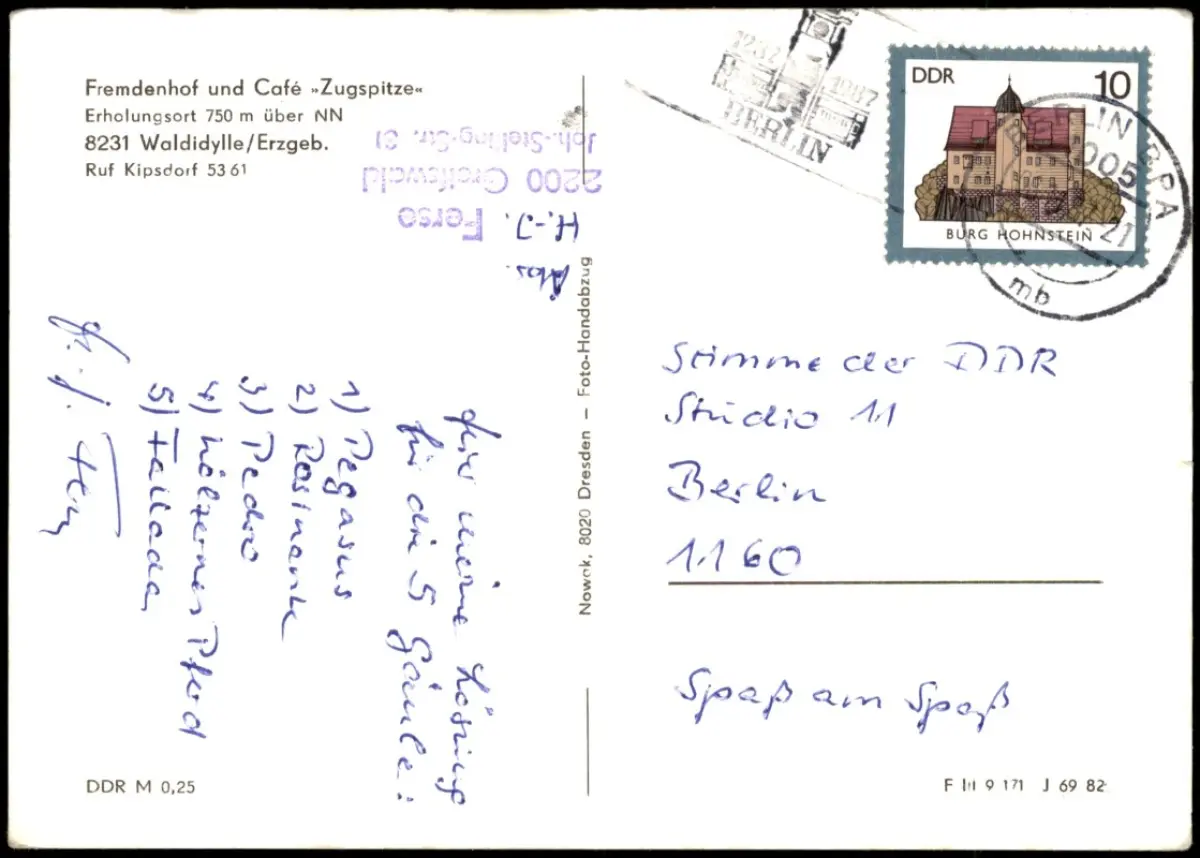 Fremdenhof und Café »Zugspitze«
Erholungsort 750 m über NN
8231 Waldidylle/Erzgeb.
Ruf Kipsdorf 53 61
Abs.
H.-J. Ferse
2200 Greifswald
Joh.-Stelling-Str. 31
1237 1987
BERLIN
DDR 10
BURG HOHNSTEIN
BERLIN BPA
1005
21
mb
Hier meine Lösung
für die 5 Gäule:
1) Pegasus
2) Rosinante
3) Pedro
4) hölzernes Pferd
5) Fallada
H. J.
Nowak, 8020 Dresden – Foto-Handabzug
Stimme der DDR
Studio 11
Berlin
1160
Spaß am Spaß
DDR M 0,25
F III 9 171 J 69 82